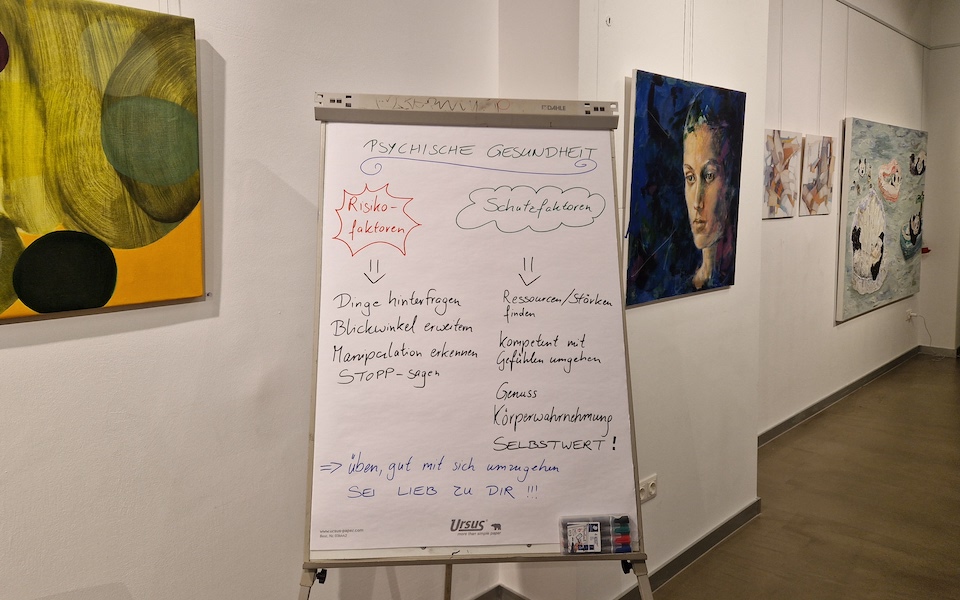 DAHLE
PSYCHISCHE GESUNDHEIT
Risiko-
faktoren
Dinge hinterfragen
Blickwinkel erweitern
Manipulation erkennen
STOPP-sagen
Schutzfaktoren
Ressourcen/Stärken
finden
kompetent mit
Gefühlen umgehen
Genuss
Körperwahrnehmung
SELBSTWERT!
=> üben, gut mit sich umzugehen
SEI LIEB ZU DIR !!!
www.ursus-paper.com
Ursus
more than simple paper